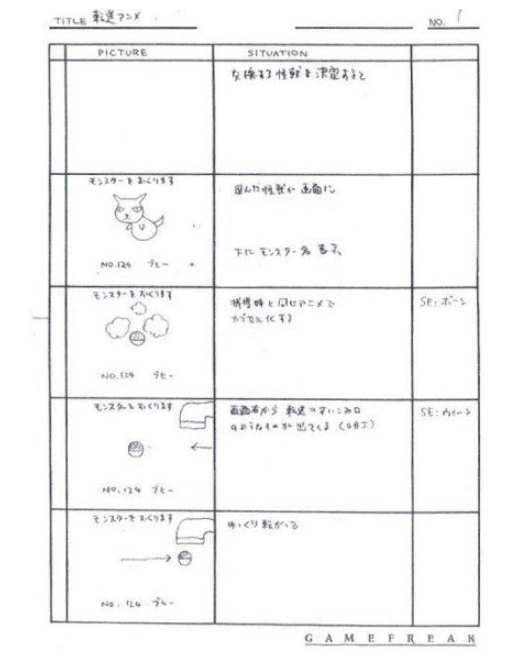 TITLE 転送アニメ
NO. 1
PICTURE
SITUATION
交換する怪獣を決定すると
モンスターをおくります
選んだ怪獣が画面に
下にモンスター名 表示
NO.124 ブヒー
モンスターをおくります
捕獲時と同じアニメで
カプセル化する
SE: ボーン
NO.124 ブヒー
モンスターをおくります
画面右から 転送のすいこみ口
のようなものが出てくる (OBJ)
SE: ウィーン
NO.124 ブヒー
モンスターをおくります
ゆっくり転がる
NO.124 ブヒー
GAMEFREAK